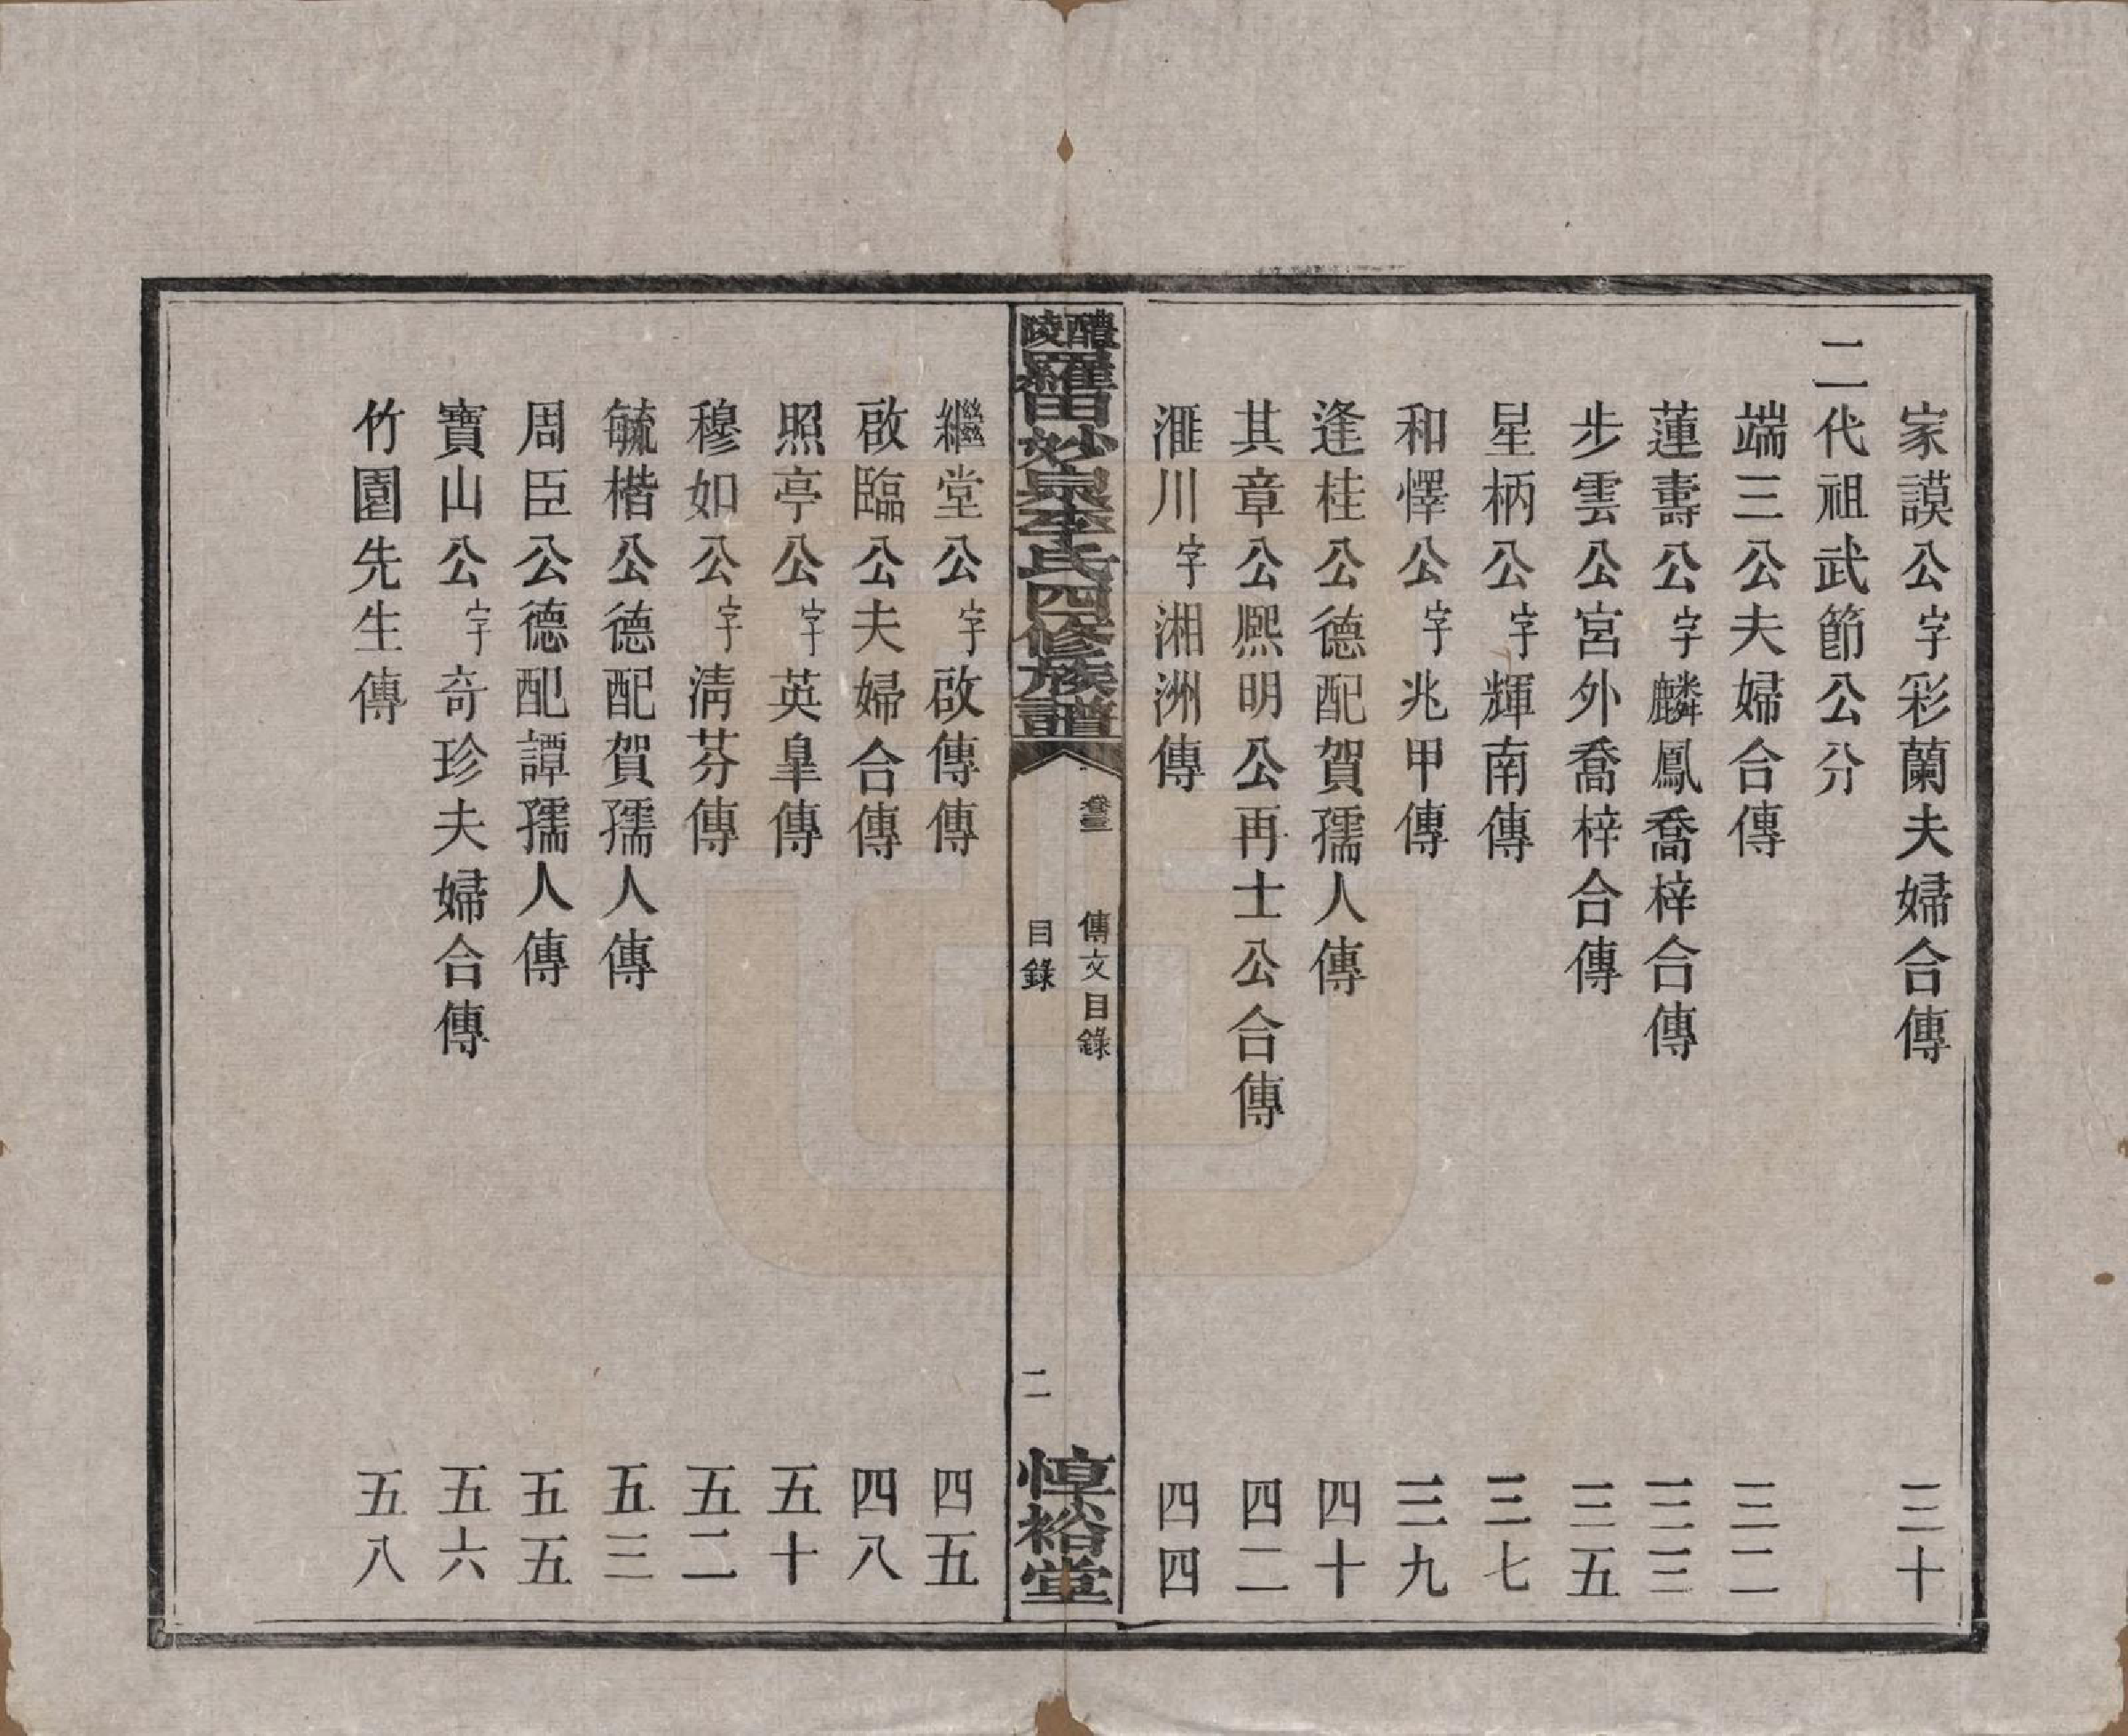 家謨公字彩蘭夫婦合傳 三十
二代祖武節公分
端三公夫婦合傳 三二
蓮壽公字麟鳳喬梓合傳 三三
步雲公宮外喬梓合傳 三五
星柄公字輝南傳 三七
和懌公字兆甲傳 三九
逢桂公德配賀孺人傳 四十
其章公熙明公再士公合傳 四二
滙川字湘洲傳 四四
醴陵羅田妙泉李氏四修族譜
卷三 傳文目錄
目錄 二
惇裕堂
繼堂公字啟傳傳 四五
啟臨公夫婦合傳 四八
照亭公字英皐傳 五十
穆如公字淸芬傳 五二
毓楷公德配賀孺人傳 五三
周臣公德配譚孺人傳 五五
寶山公字奇珍夫婦合傳 五六
竹園先生傳 五八